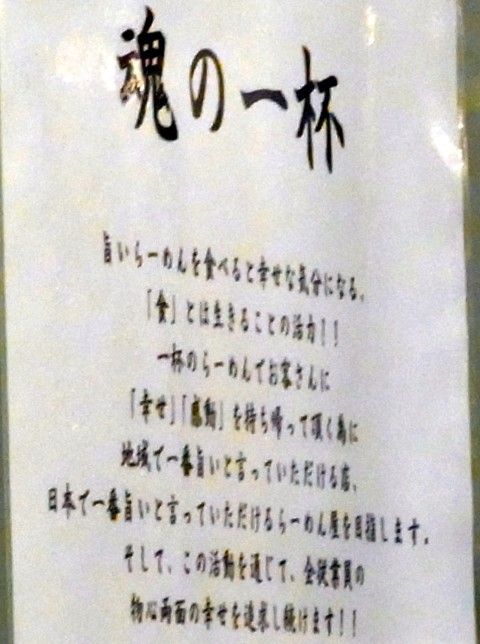 魂の一杯
旨いらーめんを食べると幸せな気分になる。
「食」とは生きることの活力！！
一杯のらーめんでお客さんに
「幸せ」「感動」を持ち帰って頂く為に
地域で一番旨いと言っていただける店、
日本で一番旨いと言っていただけるらーめん屋を目指します。
そして、この活動を通じて、全従業員の
物心両面の幸せを追求し続けます！！